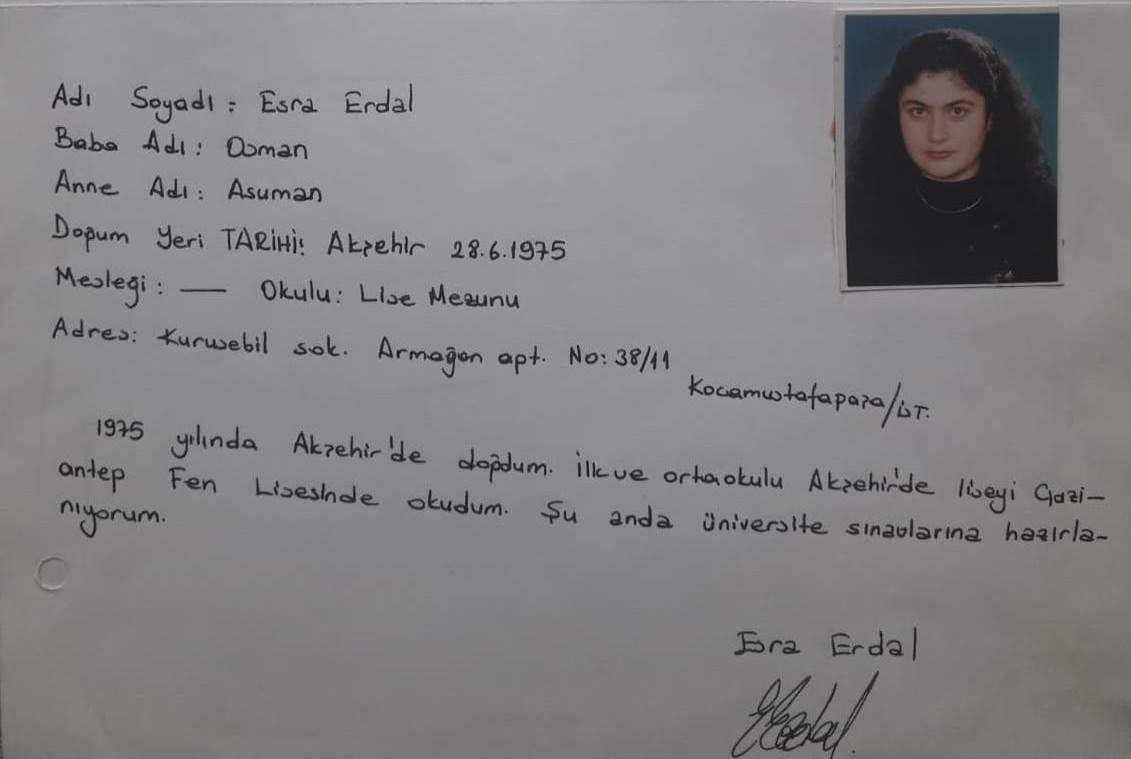 Adı Soyadı: Esra Erdal
Baba Adı: Osman
Anne Adı: Asuman
Doğum Yeri TARİHİ: Akşehir 28.6.1975
Mesleği: — Okulu: Lise Mezunu
Adres: Kurusebil sok. Armağan apt. No: 38/11
Kocamustafapaşa/İST.
1975 yılında Akşehir'de doğdum. İlk ve ortaokulu Akşehir'de liseyi Gazi-
antep Fen Lisesinde okudum. Şu anda üniversite sınavlarına hazırla-
nıyorum.
Esra Erdal